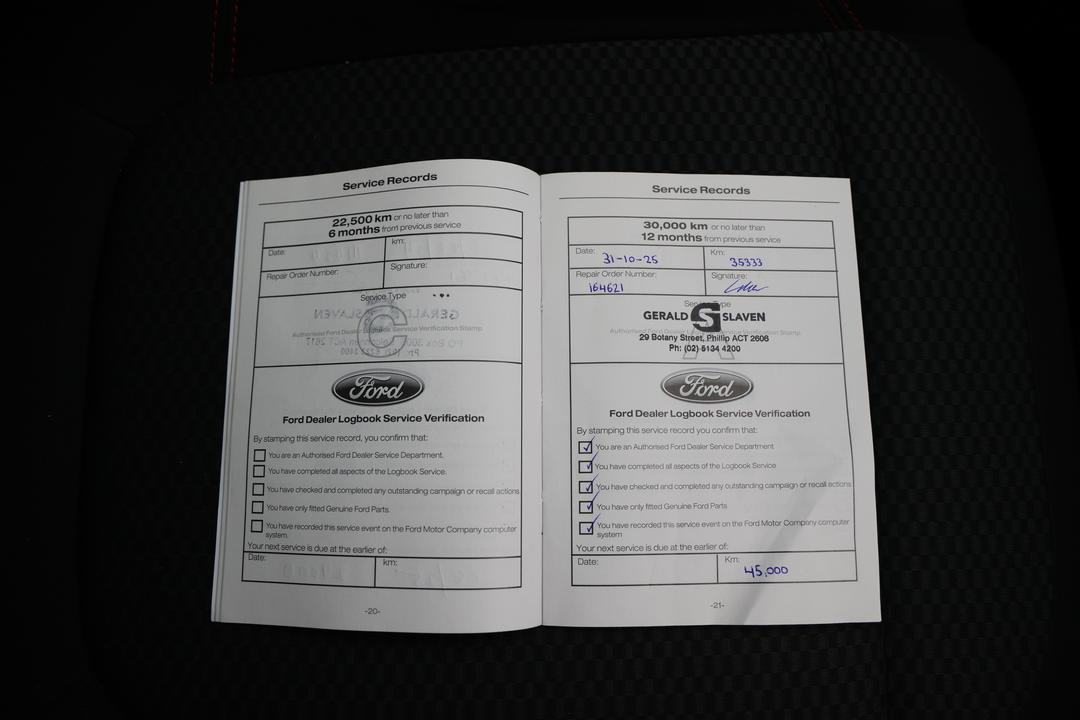 Service Records
22,500 km or no later than
6 months from previous service
Date:
km:
Repair Order Number:
Signature:
Service Type
C
Authorised Ford Dealer Logbook Service Verification Stamp
Ford
Ford Dealer Logbook Service Verification
By stamping this service record, you confirm that:
You are an Authorised Ford Dealer Service Department.
You have completed all aspects of the Logbook Service.
You have checked and completed any outstanding campaign or recall actions
You have only fitted Genuine Ford Parts.
You have recorded this service event on the Ford Motor Company computer
system.
Your next service is due at the earlier of:
Date:
km:
-20-
Service Records
30,000 km or no later than
12 months from previous service
Date: 31-10-25
Km: 35333
Repair Order Number: 164621
Signature:
Service Type
GERALD S SLAVEN
Authorised Ford Dealer Logbook Service Verification Stamp
29 Botany Street, Phillip ACT 2606
Ph: (02) 5134 4200
A
Ford
Ford Dealer Logbook Service Verification
By stamping this service record, you confirm that:
You are an Authorised Ford Dealer Service Department
You have completed all aspects of the Logbook Service
You have checked and completed any outstanding campaign or recall actions
You have only fitted Genuine Ford Parts
You have recorded this service event on the Ford Motor Company computer
system
Your next service is due at the earlier of:
Date:
Km: 45,000
-21-